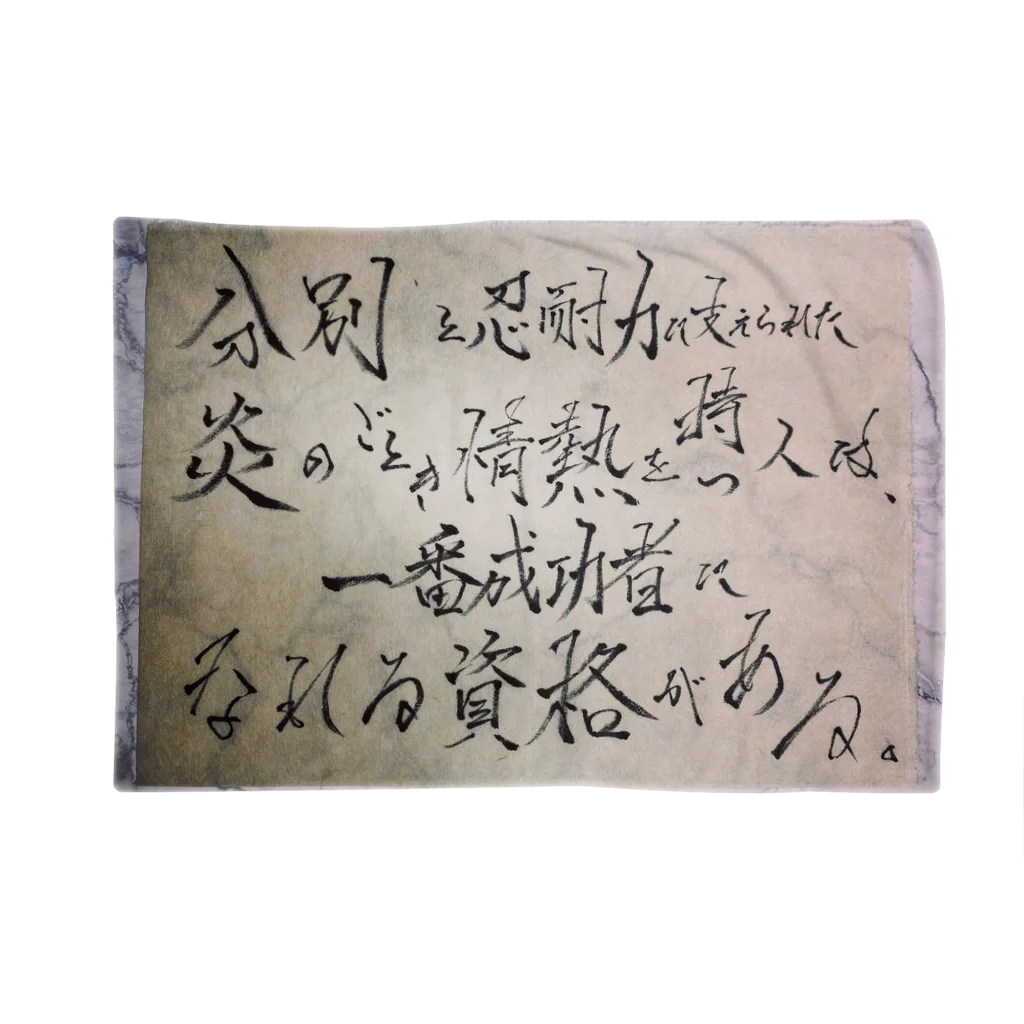 分別と忍耐力に支えられた
炎のごとき情熱を持つ人は、
一番成功者に
なれる資格がある。